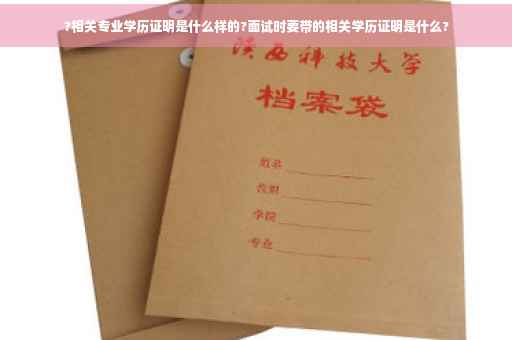 ?相关专业学历证明是什么样的?面试时要带的相关学历证明是什么?
陕西科技大学
档案袋
姓名
班级
学院
专业